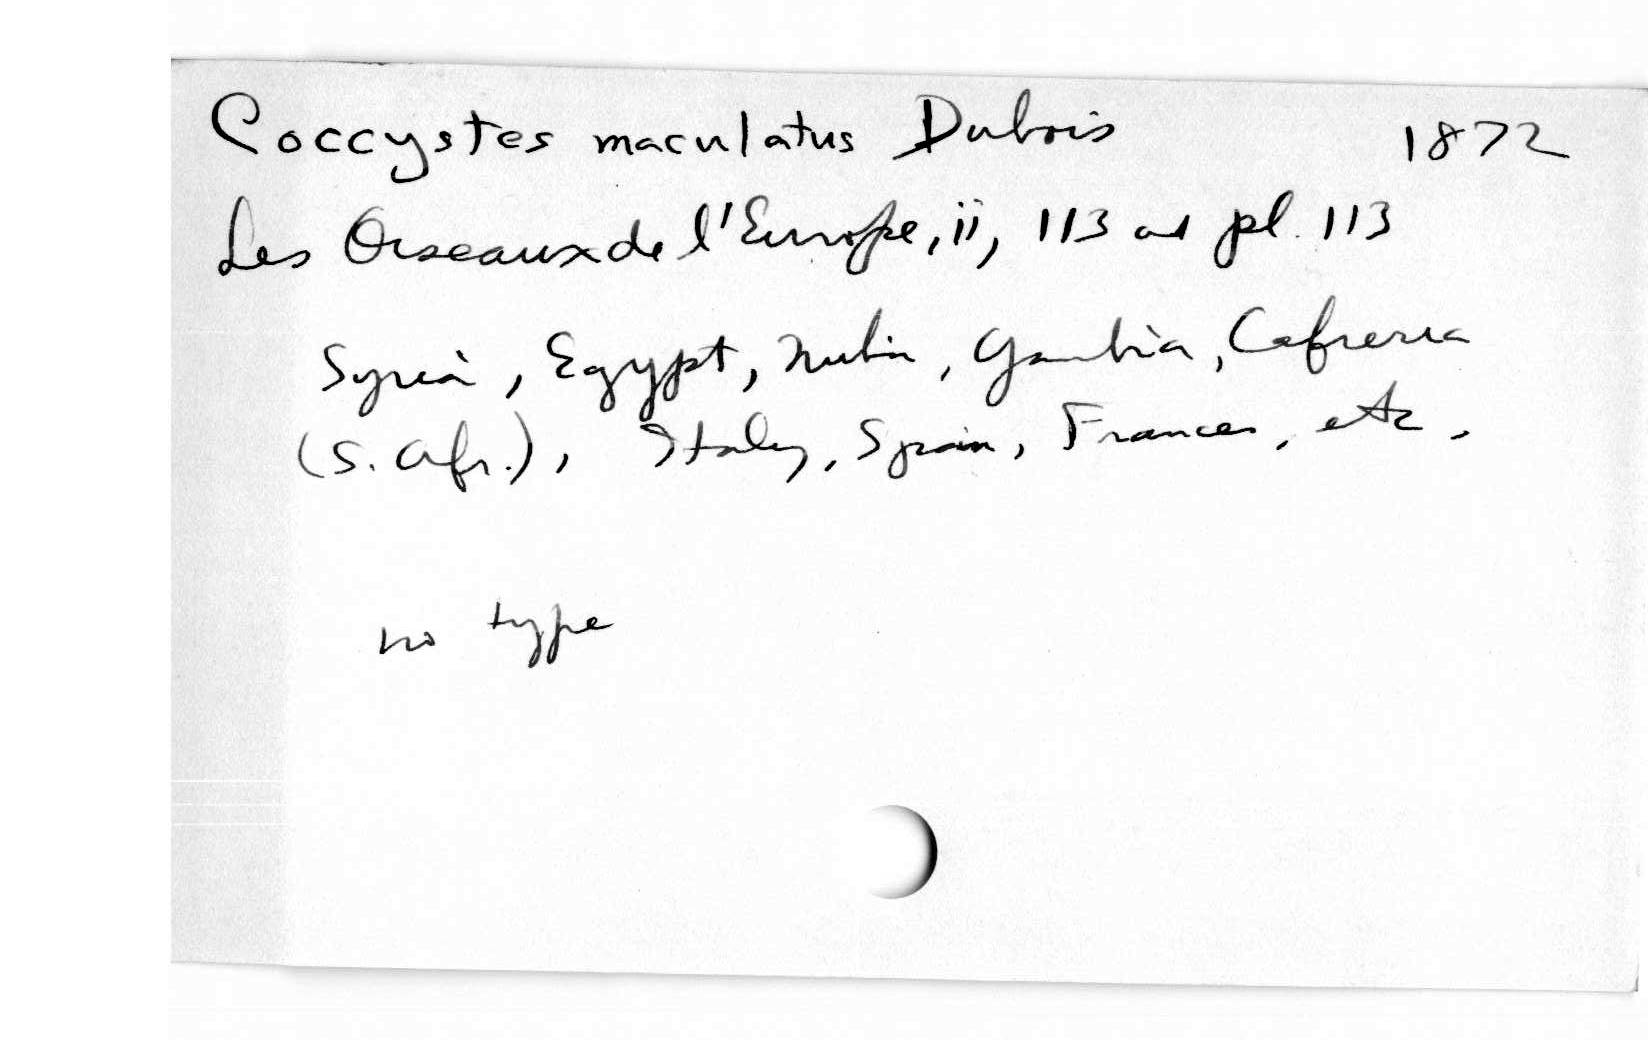 Coccystes maculatus Dubois 1872
Les Oiseaux de l'Europe, ii, 113 and pl. 113
Syria, Egypt, Nubia, Gambia, Cafreria
(S. Afr.), Italy, Spain, France, etc.
no type